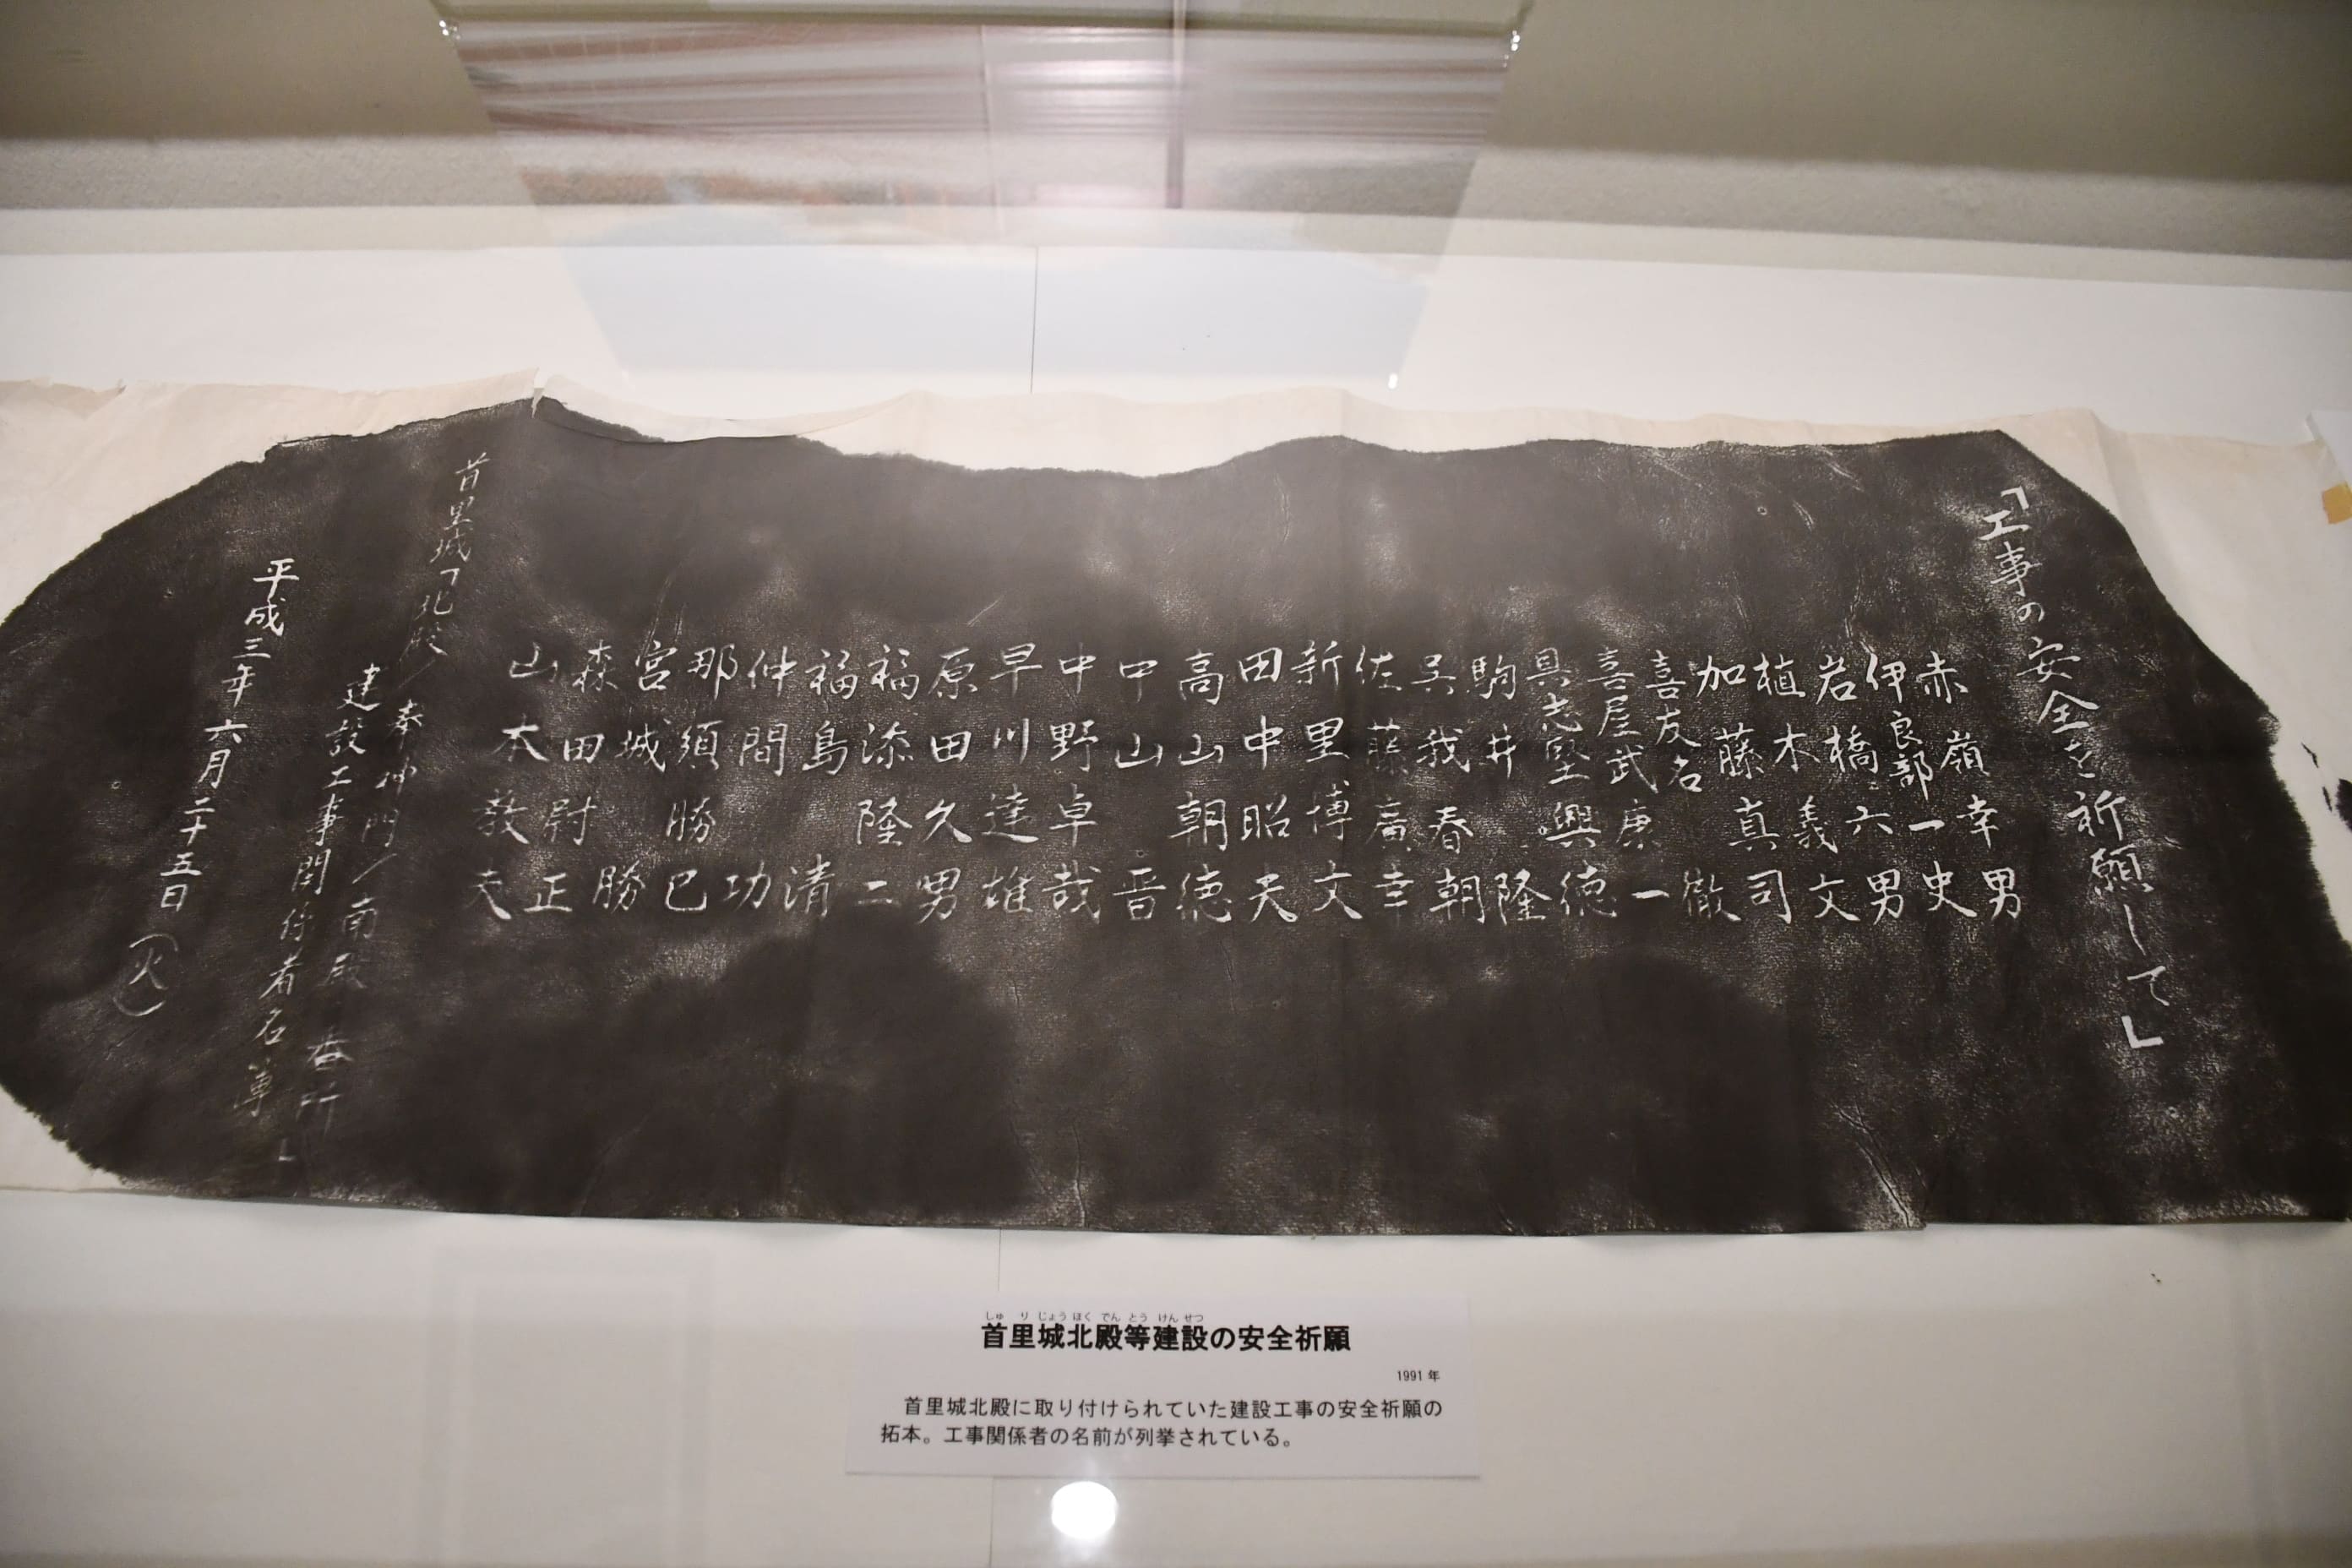 「工事の安全を祈願して」
赤嶺幸男
伊良部一史
岩橋六男
植木義文
加藤真司
喜友名徹
喜屋武庚一
具志堅興徳
駒井隆
呉我春朝
佐藤廣幸
新里博文
田中昭夫
高山朝徳
中山晋
中野卓哉
早川達雄
原田久男
福添隆二
福島清
仲間功
那須勝巳
宮城勝
森田尉正
山本敬夫
首里城「北殿/奉神門/南殿・番所」
建設工事関係者名簿
平成三年六月二十五日(火)
しゅ り じょう ほく でん とう けん せつ
首里城北殿等建設の安全祈願
1991 年
首里城北殿に取り付けられていた建設工事の安全祈願の
拓本。工事関係者の名前が列挙されている。